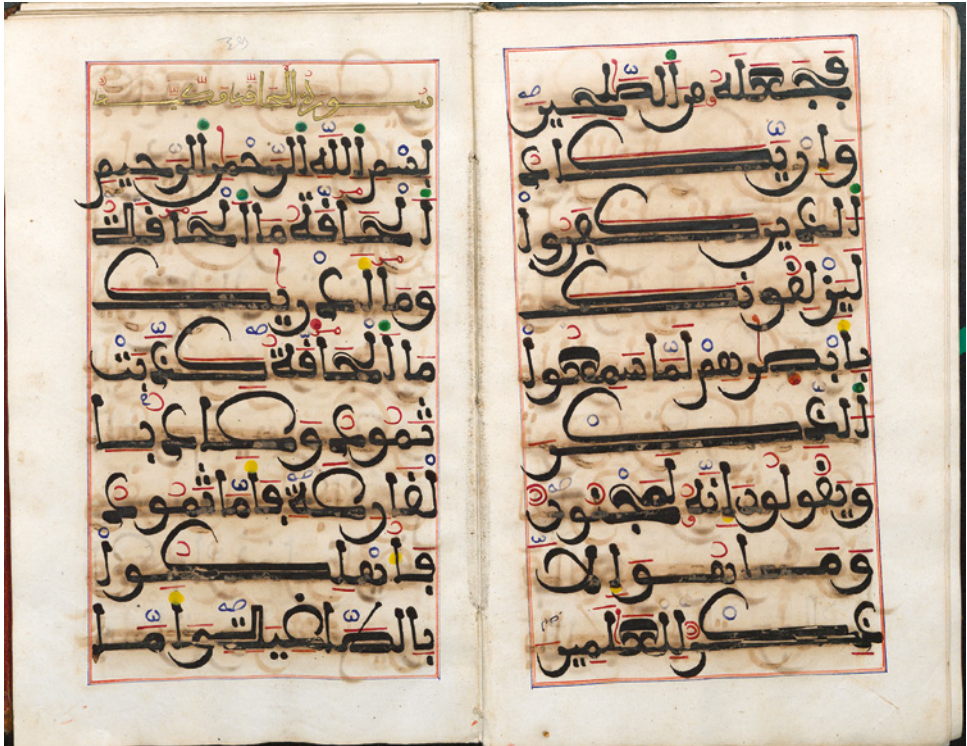 فجعله من الصلحين
وان يكاد
الذين كفروا
ليزلقونك
بابصرهم لما سمعوا
الذكر
ويقولون انه لمجنون
وما هو الا
ذكر للعلمين
سورة الحاقة مكية
بسم الله الرحمن الرحيم
الحاقة ما الحاقة
وما ادريك
ما الحاقة كذبت
ثمود وعاد با
لقارعة فاما ثمود
فاهلكوا
بالطاغية واما